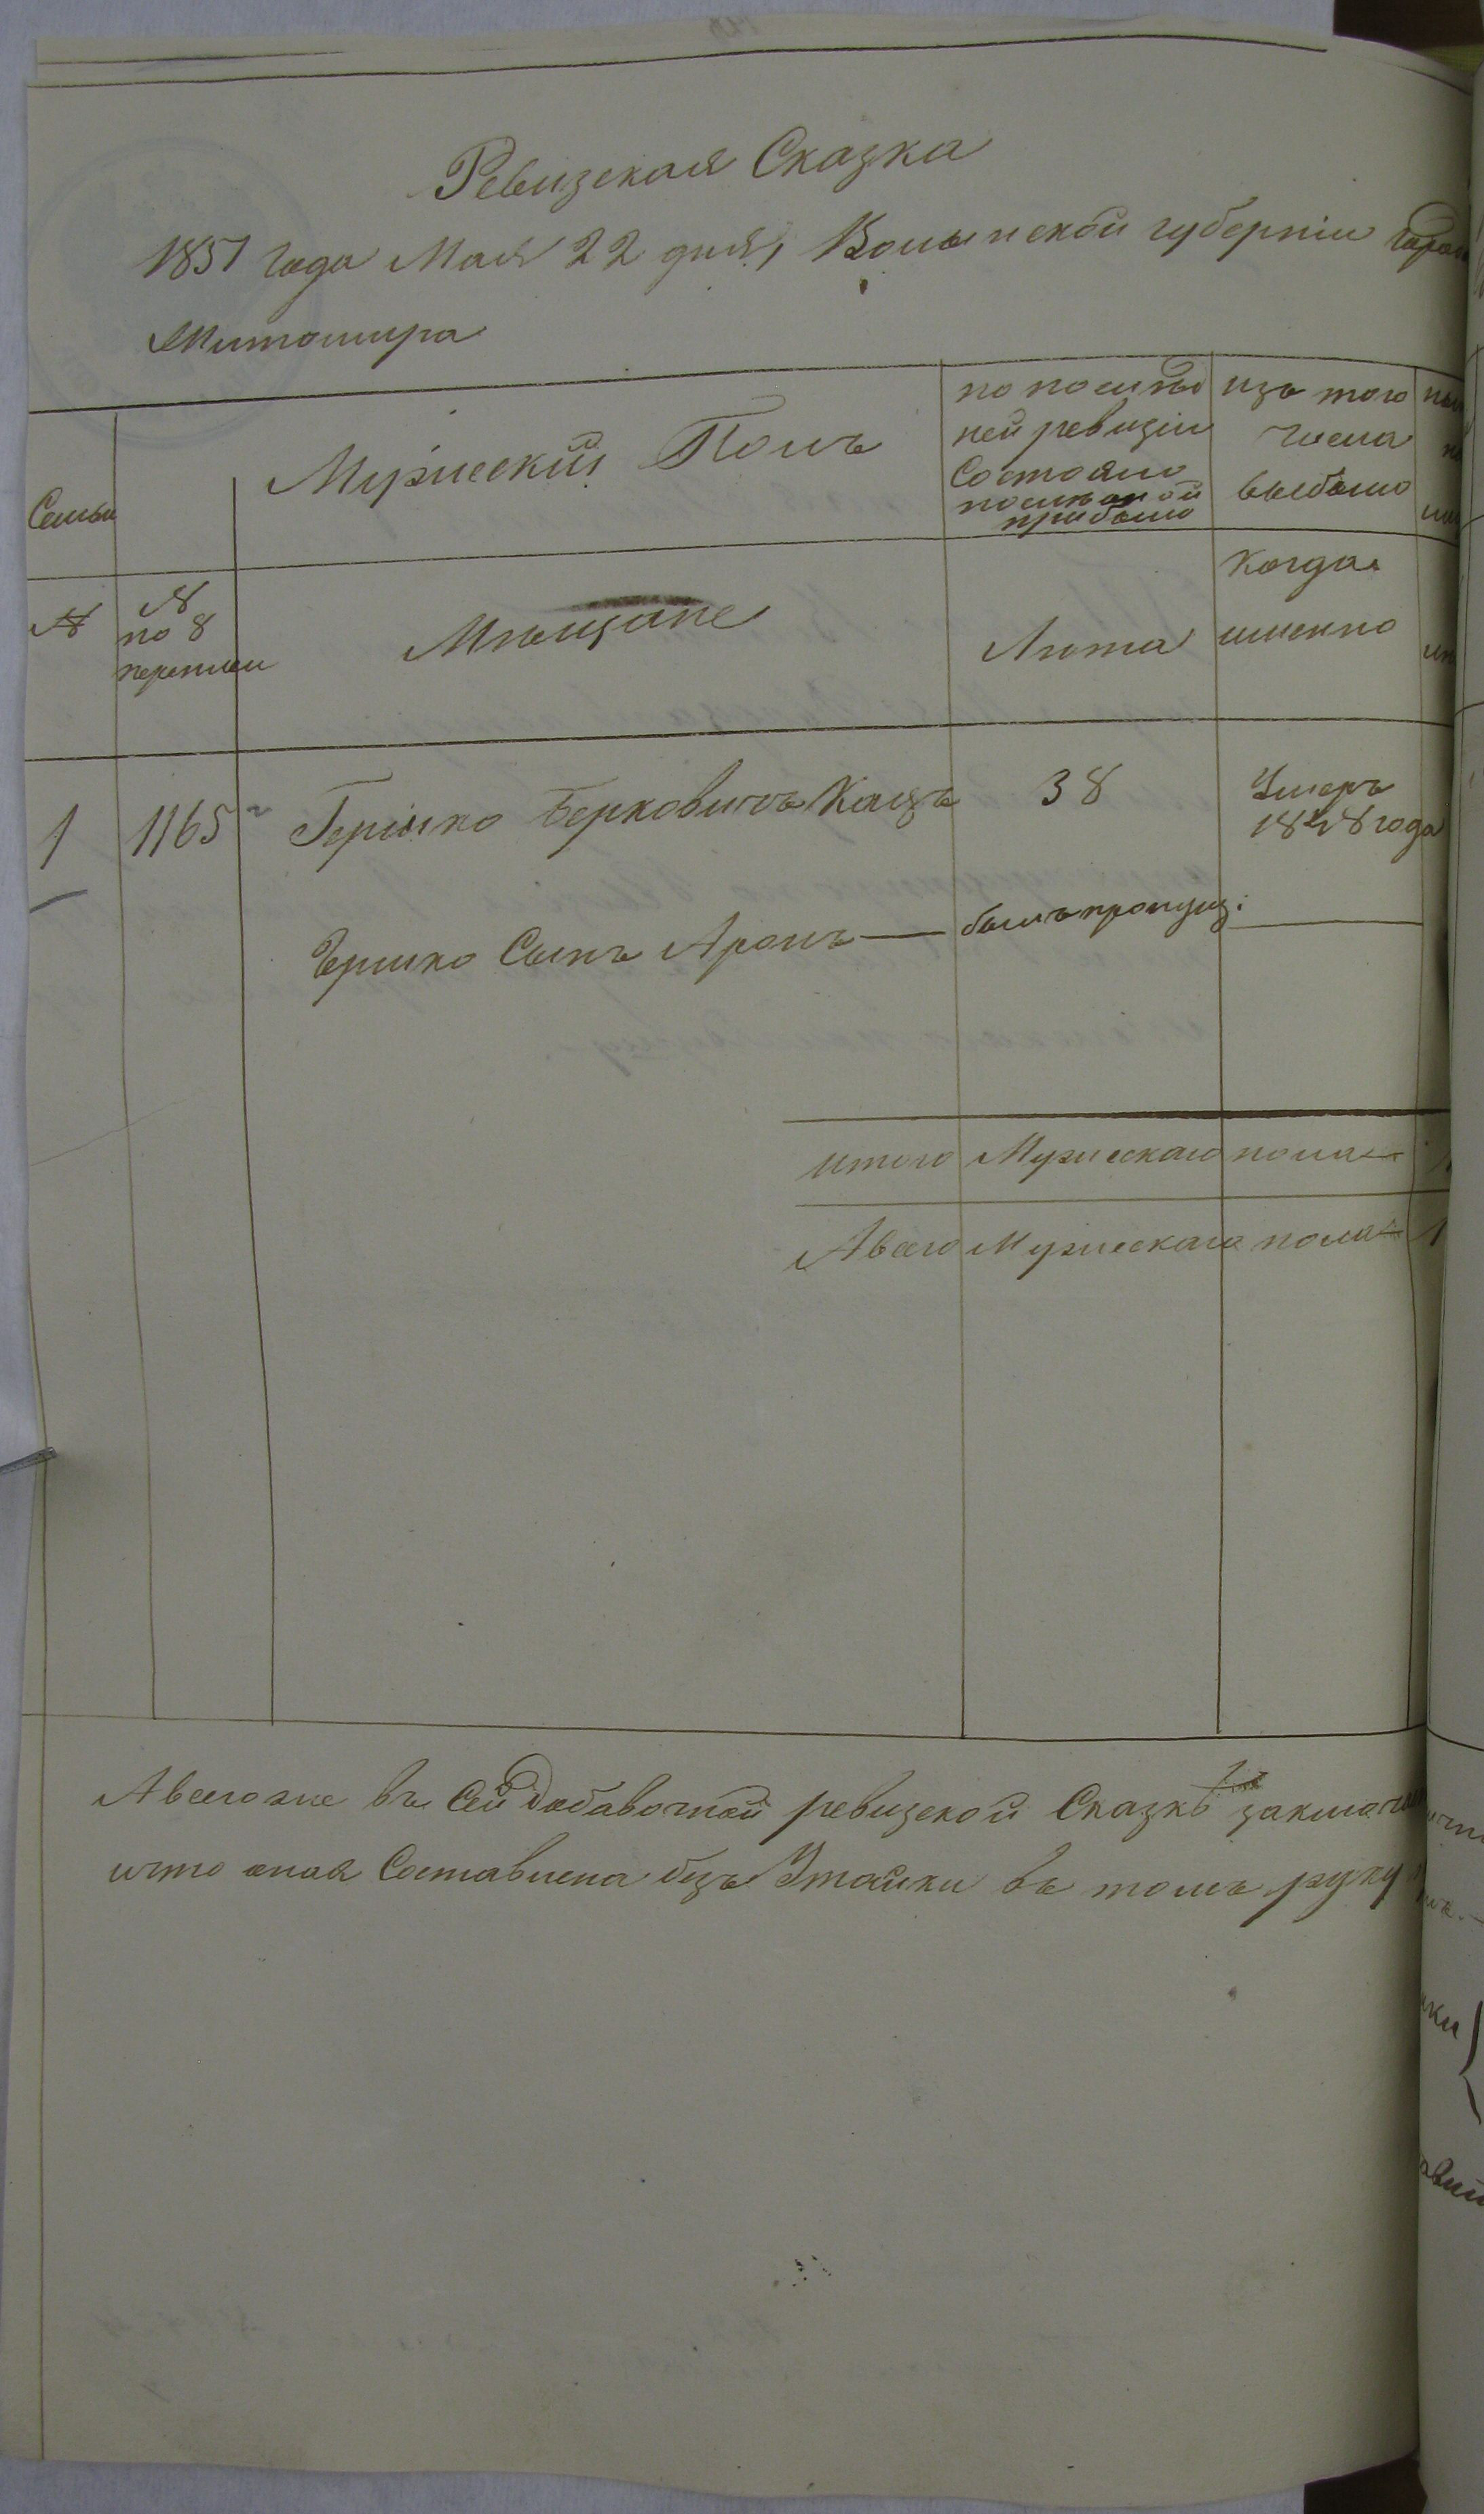 Ревизская Сказка
1851 года Мая 22 дня, Волынской губернии
Житомира
Семьи
Мужеский Полъ
по послѣд
ней ревизіи
Состояло
послѣ оной
прибыло
изъ того
числа
выбыло
№
№
по 8
переписи
Мѣщане
Лѣта
Когда
именно
1 1165 Гершко Берковичъ Кацъ 38 Умеръ
1848 года
Гершко Сынъ Аронъ — былъ пропущ:
итого Мужескаго пола — 1
А всего Мужескаго пола — 1
А всего же въ Сей добавочной ревизской Сказкѣ
что оная Составлена безъ Утайки въ томъ руку